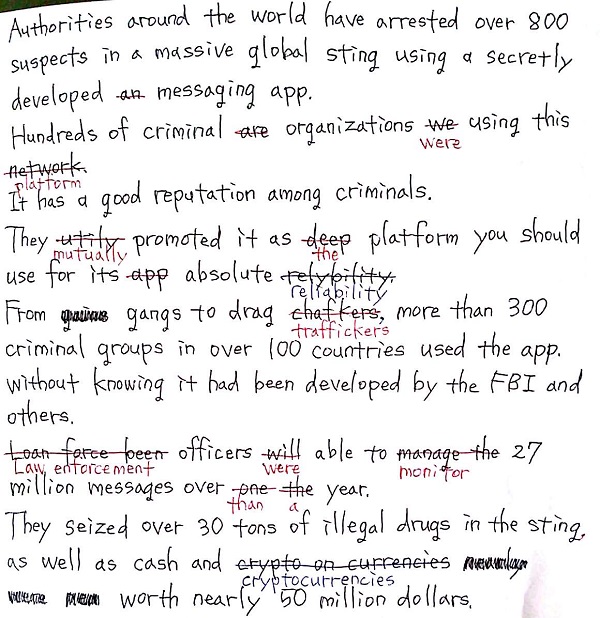 Authorities around the world have arrested over 800
suspects in a massive global sting using a secretly
developed an messaging app.
Hundreds of criminal are organizations we using this
were
network.
platform
It has a good reputation among criminals.
They utily promoted it as deep platform you should
mutually the
use for its app absolute relybility.
reliability
From gangs to drag chaffkers, more than 300
traffickers
criminal groups in over 100 countries used the app.
without knowing it had been developed by the FBI and
others.
Loan force been officers will able to manage the 27
Law enforcement were monitor
million messages over one the year.
than a
They seized over 30 tons of illegal drugs in the sting,
as well as cash and crypto on currencies
cryptocurrencies
worth nearly 50 million dollars.